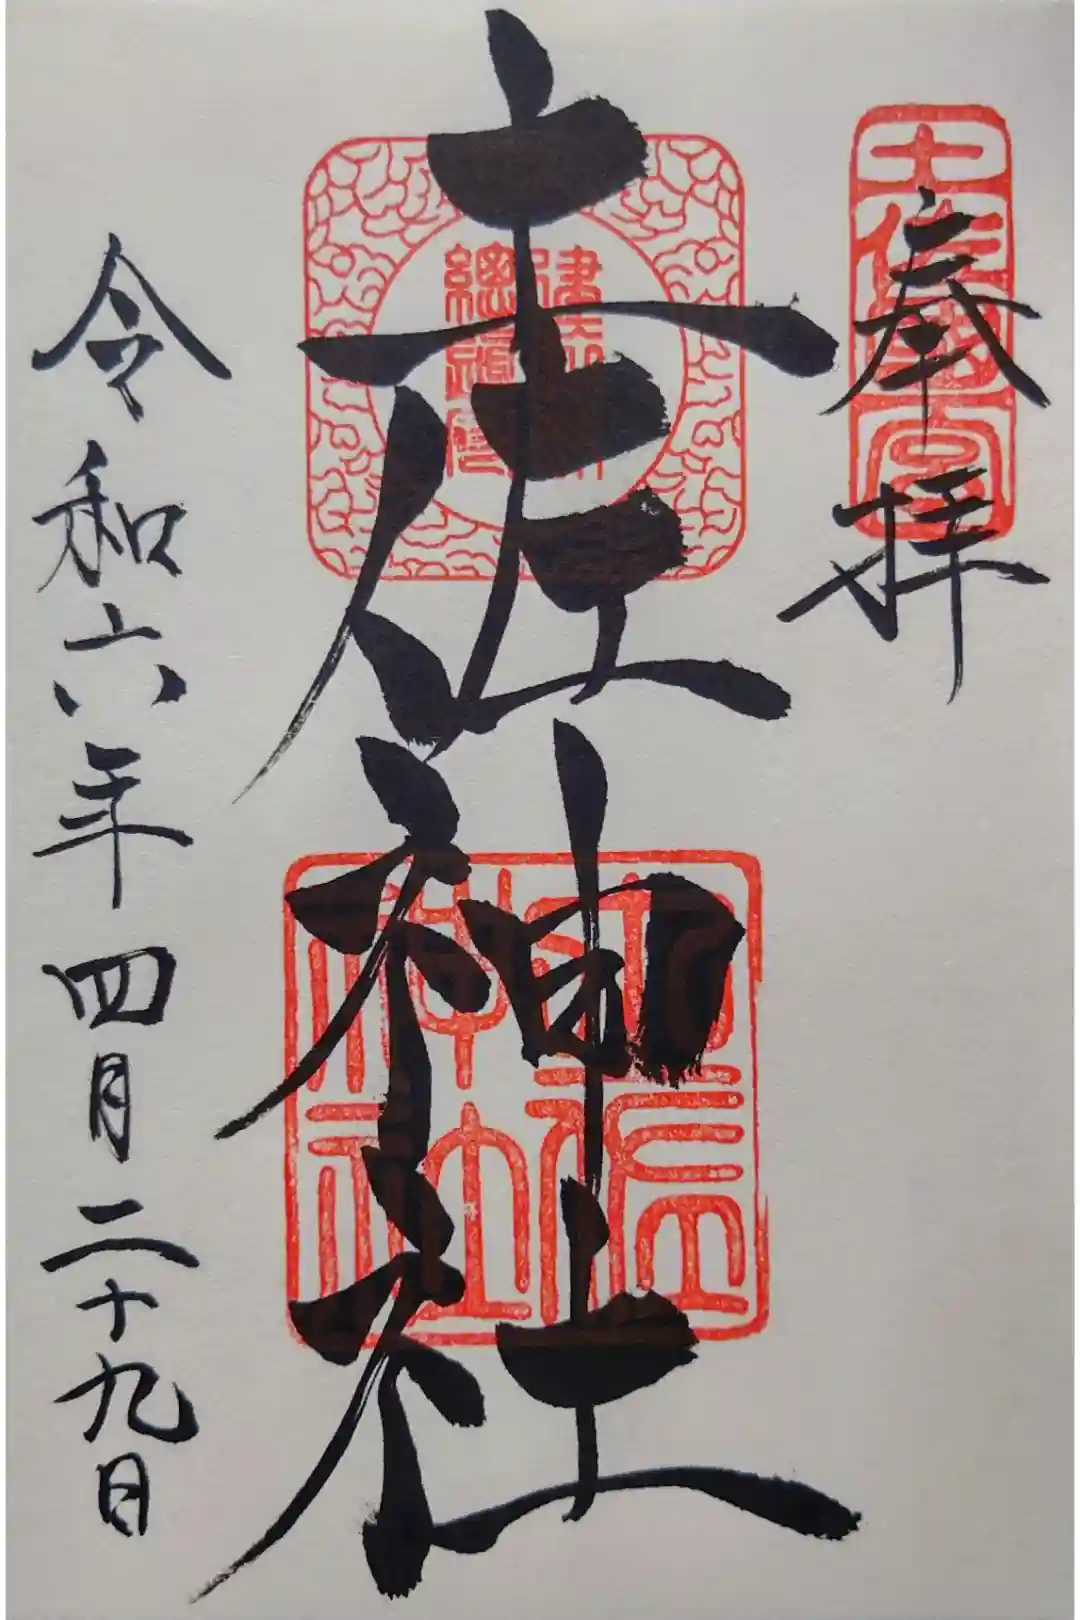 土佐國一宮
奉拝
建依別
總鎮守
土佐神社
土佐
神社
令和六年四月二十九日